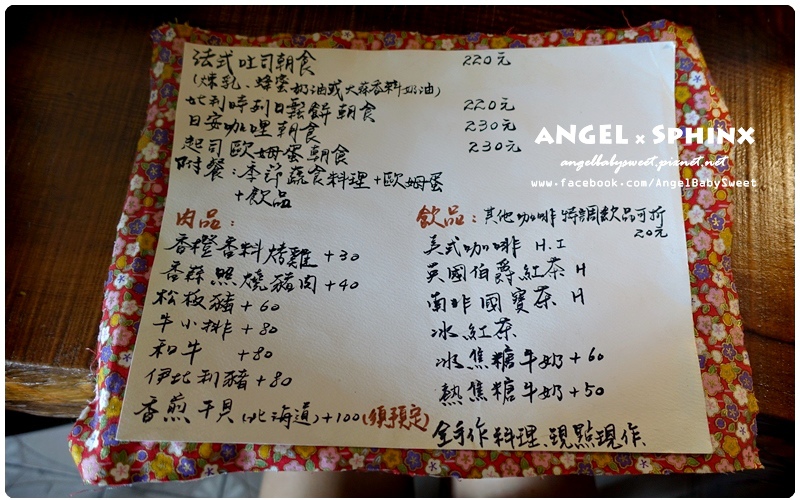 法式吐司朝食 220元
(煉乳、蜂蜜奶油或大蒜香料奶油)
比利時列日鬆餅朝食 220元
日安咖哩朝食 230元
起司歐姆蛋朝食 230元
附餐:季節蔬食料理+歐姆蛋
+飲品
肉品:
香橙香料烤雞+30
香蒜照燒豬肉+40
松板豬+60
牛小排+80
和牛 +80
伊比利豬+80
香煎干貝(北海道)+100(須預定)
飲品:其他咖啡特調飲品可折
20元
美式咖啡 H.I
英國伯爵紅茶 H
南非國寶茶 H
冰紅茶
冰焦糖牛奶+60
熱焦糖牛奶+50
全手作料理、現點現作
ANGEL x SPHINX
angelbabysweet.pixnet.net
www.facebook.com/AngelBabySweet